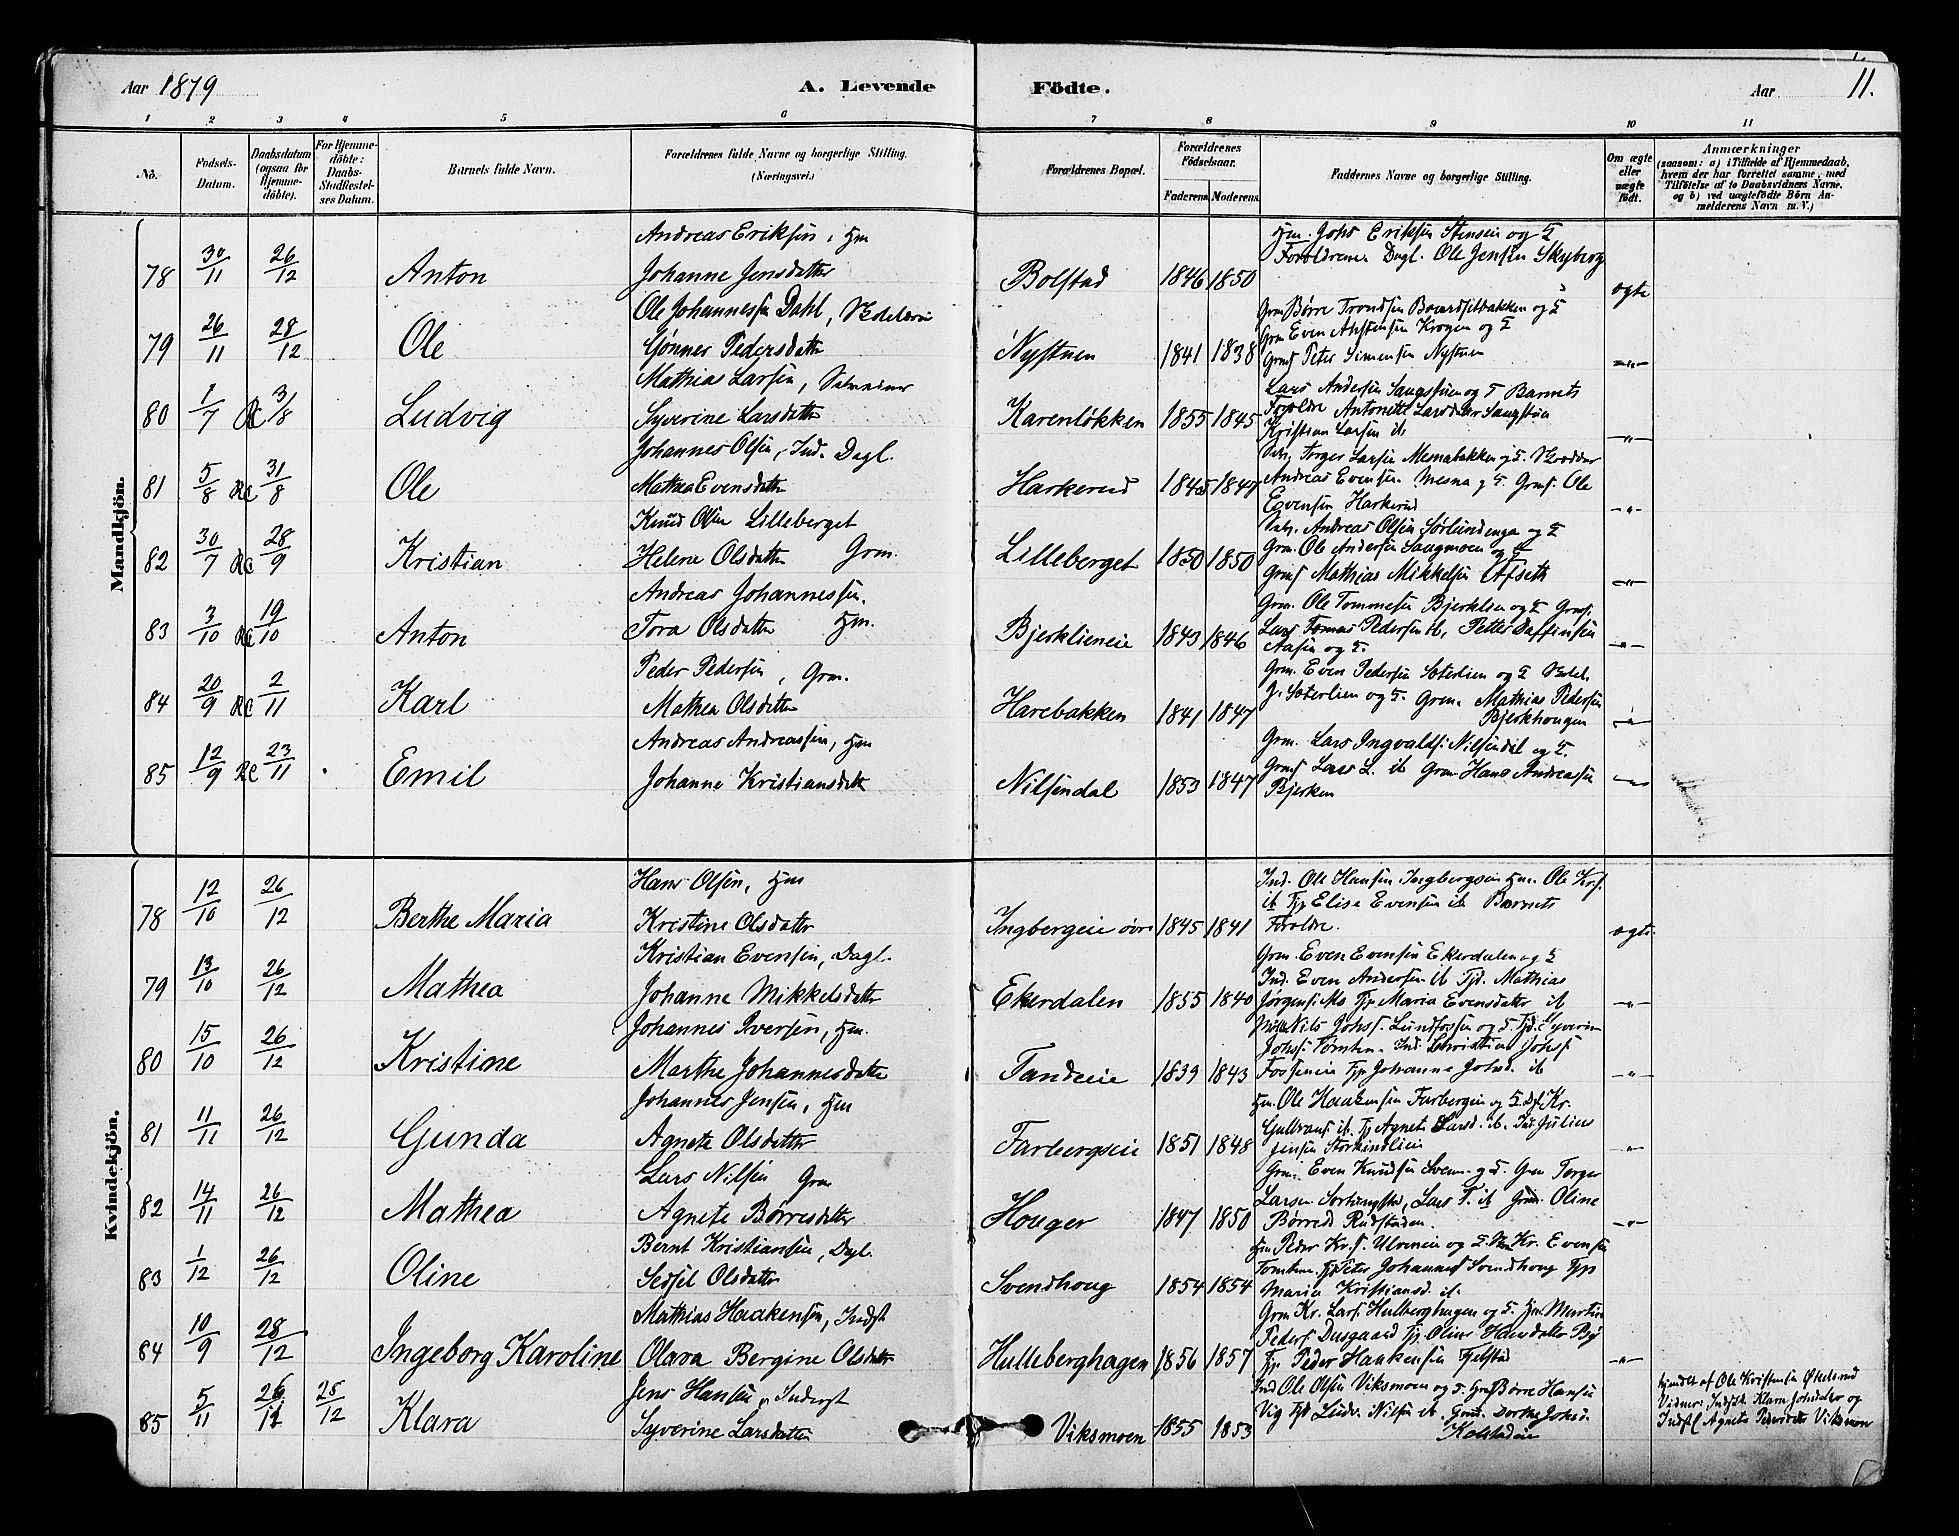 Aar 1879 A. Levende Fødte. Aar 11.
1 2 3 4 5 6 7 8 9 10 11
No.
Fødsels-Datum.
Daabsdatum (ogsaa for Hjemmedøbte).
For Hjemmedøbte: Daabs-Stadfæstelses Datum.
Barnets fulde Navn.
Forældrenes fulde Navne og borgerlige Stilling. (Næringsvei.)
Forældrenes Bopæl.
Forældrenes Fødselsaar.
Faderens Moderens
Faddernes Navne og borgerlige Stilling.
Om ægte eller uægte født.
Anmærkninger
(saasom: a) i Tilfælde af Hjemmedaab,
hvem der har forrettet samme, med
Tilføielse af to Daabsvidners Navne,
og b) ved uægtefødte Børn An-
melderens Navn m. V.)
Mandkjön.
78 30/11 26/12 Anton
Andreas Eriksen, Hm
Johanne Jensdatter
Bolstad 1846 1850
Hm. Johs Eriksen Stensen og H
Forældrene Dagl. Ole Jensen Skyberg
ægte
79 26/11 28/12 Ole
Ole Johannessen Dahl,
Gønner Pedersdatter
Nystuen 1841 1838
Grm Børre Trondsen Baardsetbakken og H
Grm Even Krogen og H
Grmf Peter Simensen Nystuen
—„—
80 1/7 3/8 Ludvig
Mathias Larsen,
Syverine Larsdatter
Karenløkken 1855 1845
Lars Andersen og H Barnets
Forældre Antonette Larsdatter
Kristian Larsen it
—„—
81 5/8 31/8 Ole
Johannes Olsen, Ind. Dagl.
Mathea Evensdatter
Harkerud 1845 1847
Torger Larsen Mesnabakken og H.
Andreas Evensen Mesna og H. Grmf. Ole
Evensen Harkerud
—„—
82 30/7 28/9 Kristian
Knud Olsen Lilleberget
Helene Olsdatter Grm.
Lilleberget 1850 1850
Andreas Olsen Sørlundenga og H
Grm. Ole Andersen Saugmoen og H
Grmf Mathias Mikkelsen
—„—
83 3/10 19/10 Anton
Andreas Johannessen.
Tora Olsdatter Hm.
Bjerklieneie 1843 1846
Grm. Ole Tommesen Bjerklien og H Grmf.
Lars Tomas Pedersen it, Petter
Aasen og H.
—„—
84 20/9 2/11 Karl
Peder Pedersen, Grm.
Mathea Olsdatter
Harebakken 1841 1847
Grm. Even Pedersen Sæterlien og H
J. Sæterlien og H. Grm. Mathias Pedersen
Bjerkhougen
85 12/9 23/11 Emil
Andreas Andreassen, Hm
Johanne Kristiansdatt
Nilsendal 1853 1847
Grm. Lars Ingvaldsf. Nilsendal og H.
Grmf Lars L. it Grm Hans Andreassen
Bjerken
Kvindekjön.
78 12/10 26/12 Berthe Maria
Hans Olsen, Hm
Kristine Olsdatter
Ingbergeie øvre 1845 1841
Ind. Ole Hansen Ingbergseie Hm. Ole Krf.
it Tjp Elise Evensen it Barnets
Forældre.
ægte
79 13/10 26/12 Mathea
Kristian Evensen, Dagl.
Johanne Mikkelsdatter
Ekerdalen 1855 1840
Grm. Even Evensen Ekerdalen og H
Ind. Even Andersen it Tjd. Mathias
Jørgensen Mo Tjp Maria Evensdatter it
—„—
80 15/10 26/12 Kristine
Johannes Iversen, Hm.
Marthe Johannesdatter
Tandeie 1839 1843
Nils Johsf. Lundfossen og H Tjd. Syverin
Johsf. Tømten. Ind. Christian Johsf
Fosseneie Tjp Johanne Johsd. it
—„—
81 11/11 26/12 Gunda
Johannes Jensen, Hm
Agnete Olsdatter
Farbergseie 1851 1848
Hm. Ole Haakensen Farbergeie og H Dgl Kr.
Gulbrandf it. Tjp Agnete Larsd. it. Ind Julius
Jensen
—„—
82 14/11 26/12 Mathea
Lars Nilsen Grm
Agnete Børresdatter
Houger 1847 1850
Grm. Even Knudsen Svenn. og H. Grm Torger
Larsen, Lars T. it Grm. Oline
Børresd Rudstaden.
—„—
83 1/12 26/12 Oline
Bernt Kristiansen, Dagl.
Sedsel Olsdatter
Svendhoug 1854 1854
Hm Peder Kr. f. Ulveneie og H. Kr. Evensen
Tomtene. Tjp Peter Johannesf Svendhoug Tjp
Maria Kristiansd. it.
84 10/9 28/12 Ingeborg Karoline
Mathias Haakensen, Indst
Olava Bergine Olsdatter
Hulleberghagen 1856 1857
Grm Kr. Larsf. Hulberghagen og H. Hm Martin
Pedersf Dusgaard Tjp Oline Hansdatter By
Tjp Peder Haakensen Fjelstad
—„—
85 5/11 26/11 25/12 Klara
Jens Hansen, Inderst
Syverine Larsdatter
Viksmoen 1855 1853
Ind Ole Olsen Viksmoen og H. Grmf Børre Hansen
Vig Tjd Ludv. Nilsen it. Grmd. Dorthe Johsd.
Kolstadeie
hjemdøbt af Ole Kristensen Økelsrud
Vidner: Indstk. Klara Johsdatter og
Indstk Agnete Pedersdatter Viksmoen